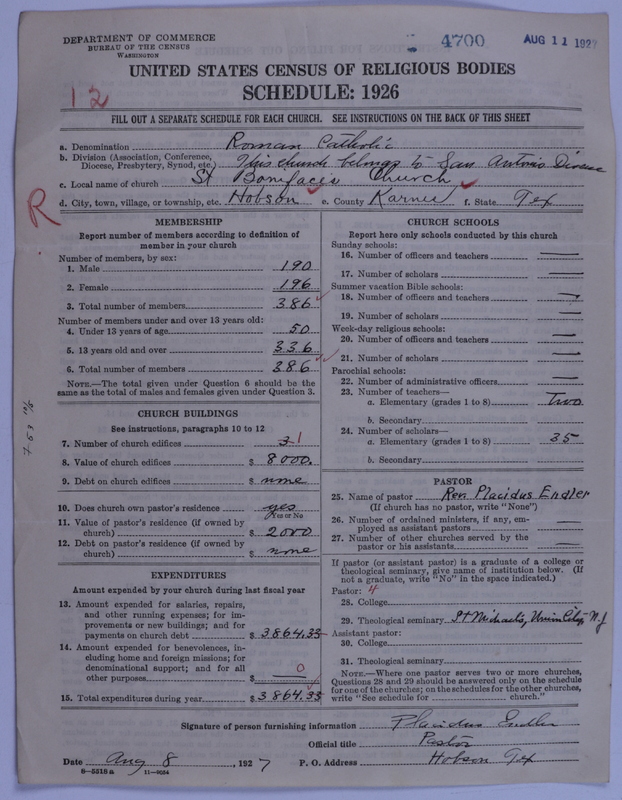 DEPARTMENT OF COMMERCE
BUREAU OF THE CENSUS
WASHINGTON
4700
AUG 11 1927
UNITED STATES CENSUS OF RELIGIOUS BODIES
SCHEDULE: 1926
12
FILL OUT A SEPARATE SCHEDULE FOR EACH CHURCH. SEE INSTRUCTIONS ON THE BACK OF THIS SHEET
a. Denomination Roman Catholic
b. Division (Association, Conference, Diocese, Presbytery, Synod, etc.) This church belongs to San Antonio Diocese
c. Local name of church St Bonifaces Church
d. City, town, village, or township, etc. Hobson e. County Karnes f. State Tex
R
MEMBERSHIP
Report number of members according to definition of
member in your church
Number of members, by sex:
1. Male 190
2. Female 196
3. Total number of members 386
Number of members under and over 13 years old:
4. Under 13 years of age 50
5. 13 years old and over 336
6. Total number of members 386
NOTE.—The total given under Question 6 should be
same as the total of males and females given under Question 3.
CHURCH BUILDINGS
See instructions, paragraphs 10 to 12
7. Number of church edifices 3 1
8. Value of church edifices $ 8000.
9. Debt on church edifices $ none
10. Does church own pastor's residence? yes
Yes or No
11. Value of pastor's residence (if owned by
church) $ 2000
12. Debt on pastor's residence (if owned by
church) $ none
EXPENDITURES
Amount expended by your church during last fiscal year
13. Amount expended for salaries, repairs,
and other running expenses; for im-
provements or new buildings; and for
payments on church debt $ 3864.33
14. Amount expended for benevolences, in-
cluding home and foreign missions; for
denominational support; and for all
other purposes $ — 0
15. Total expenditures during year $ 3864.33
CHURCH SCHOOLS
Report here only schools conducted by this church
Sunday schools:
16. Number of officers and teachers —
17. Number of scholars —
Summer vacation Bible schools:
18. Number of officers and teachers —
19. Number of scholars —
Week-day religious schools:
20. Number of officers and teachers —
21. Number of scholars —
Parochial schools:
22. Number of administrative officers —
23. Number of teachers—
a. Elementary (grades 1 to 8) Two
b. Secondary
24. Number of scholars—
a. Elementary (grades 1 to 8) 35
b. Secondary
PASTOR
25. Name of pastor Rev. Placidus Endler
(If church has no pastor, write "None")
26. Number of ordained ministers, if any, em-
ployed as assistant pastors —
27. Number of other churches served by the
pastor or his assistants —
If pastor (or assistant pastor) is a graduate of a college or
theological seminary, give name of institution below. (If
not a graduate, write "No" in the space indicated.)
Pastor: 4
28. College
29. Theological seminary St Michaels, Union City N.J
Assistant pastor:
30. College
31. Theological seminary
NOTE.—Where one pastor serves two or more churches,
Questions 28 and 29 should be answered only on the schedule
for one of the churches; on the schedules for the other churches,
write "See schedule for church."
Signature of person furnishing information Placidus Endler
Official title Pastor
Date Aug 8, 1927 P. O. Address Hobson Tex
8-5518a 11-9054